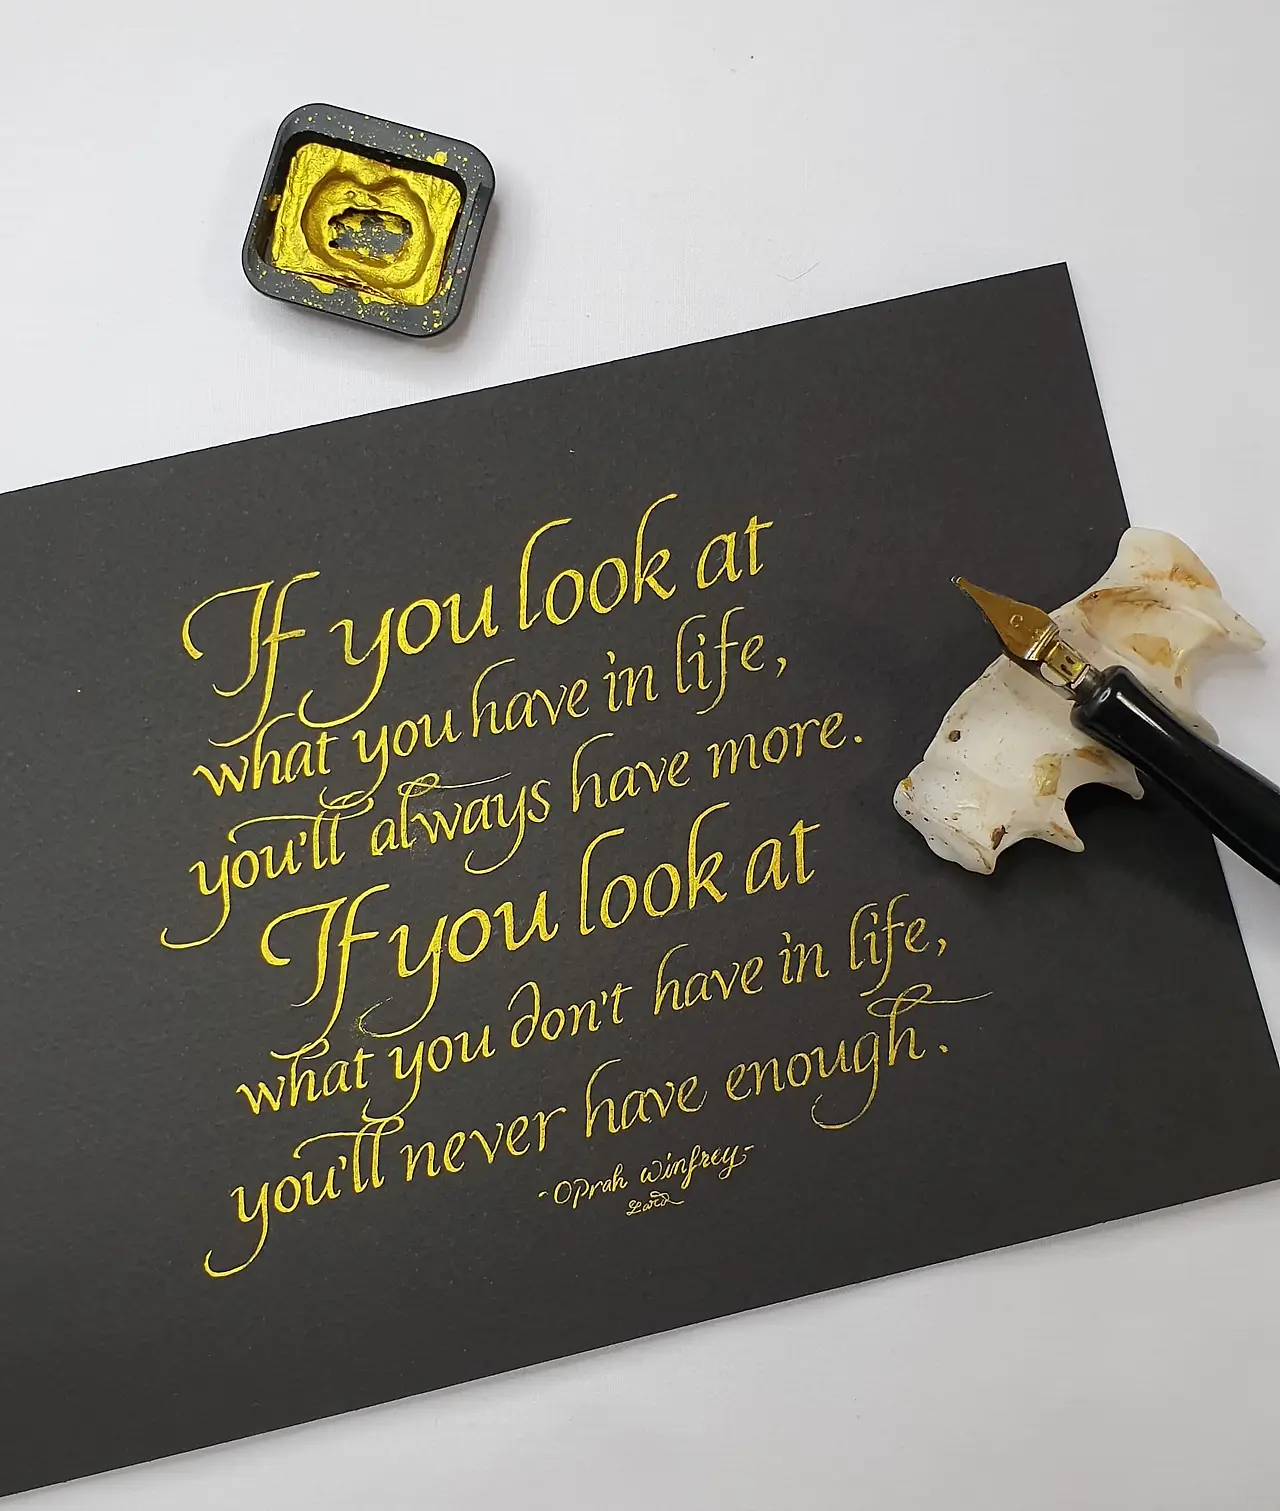 If you look at
what you have in life,
you'll always have more.
If you look at
what you don't have in life,
you'll never have enough.
-Oprah Winfrey-